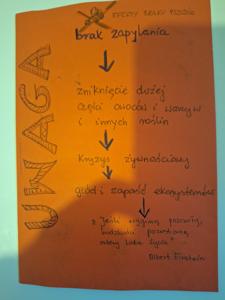 UWAGA
EFEKTY BRAKU PSZCZÓŁ
brak zapylania
zniknięcie dużej
części owoców i warzyw
i innych roślin
kryzys żywnościowy
głód i zapaść ekosystemów
"Jeśli wyginą pszczoły,
ludzkości pozostaną
cztery lata życia"
Albert Einstein